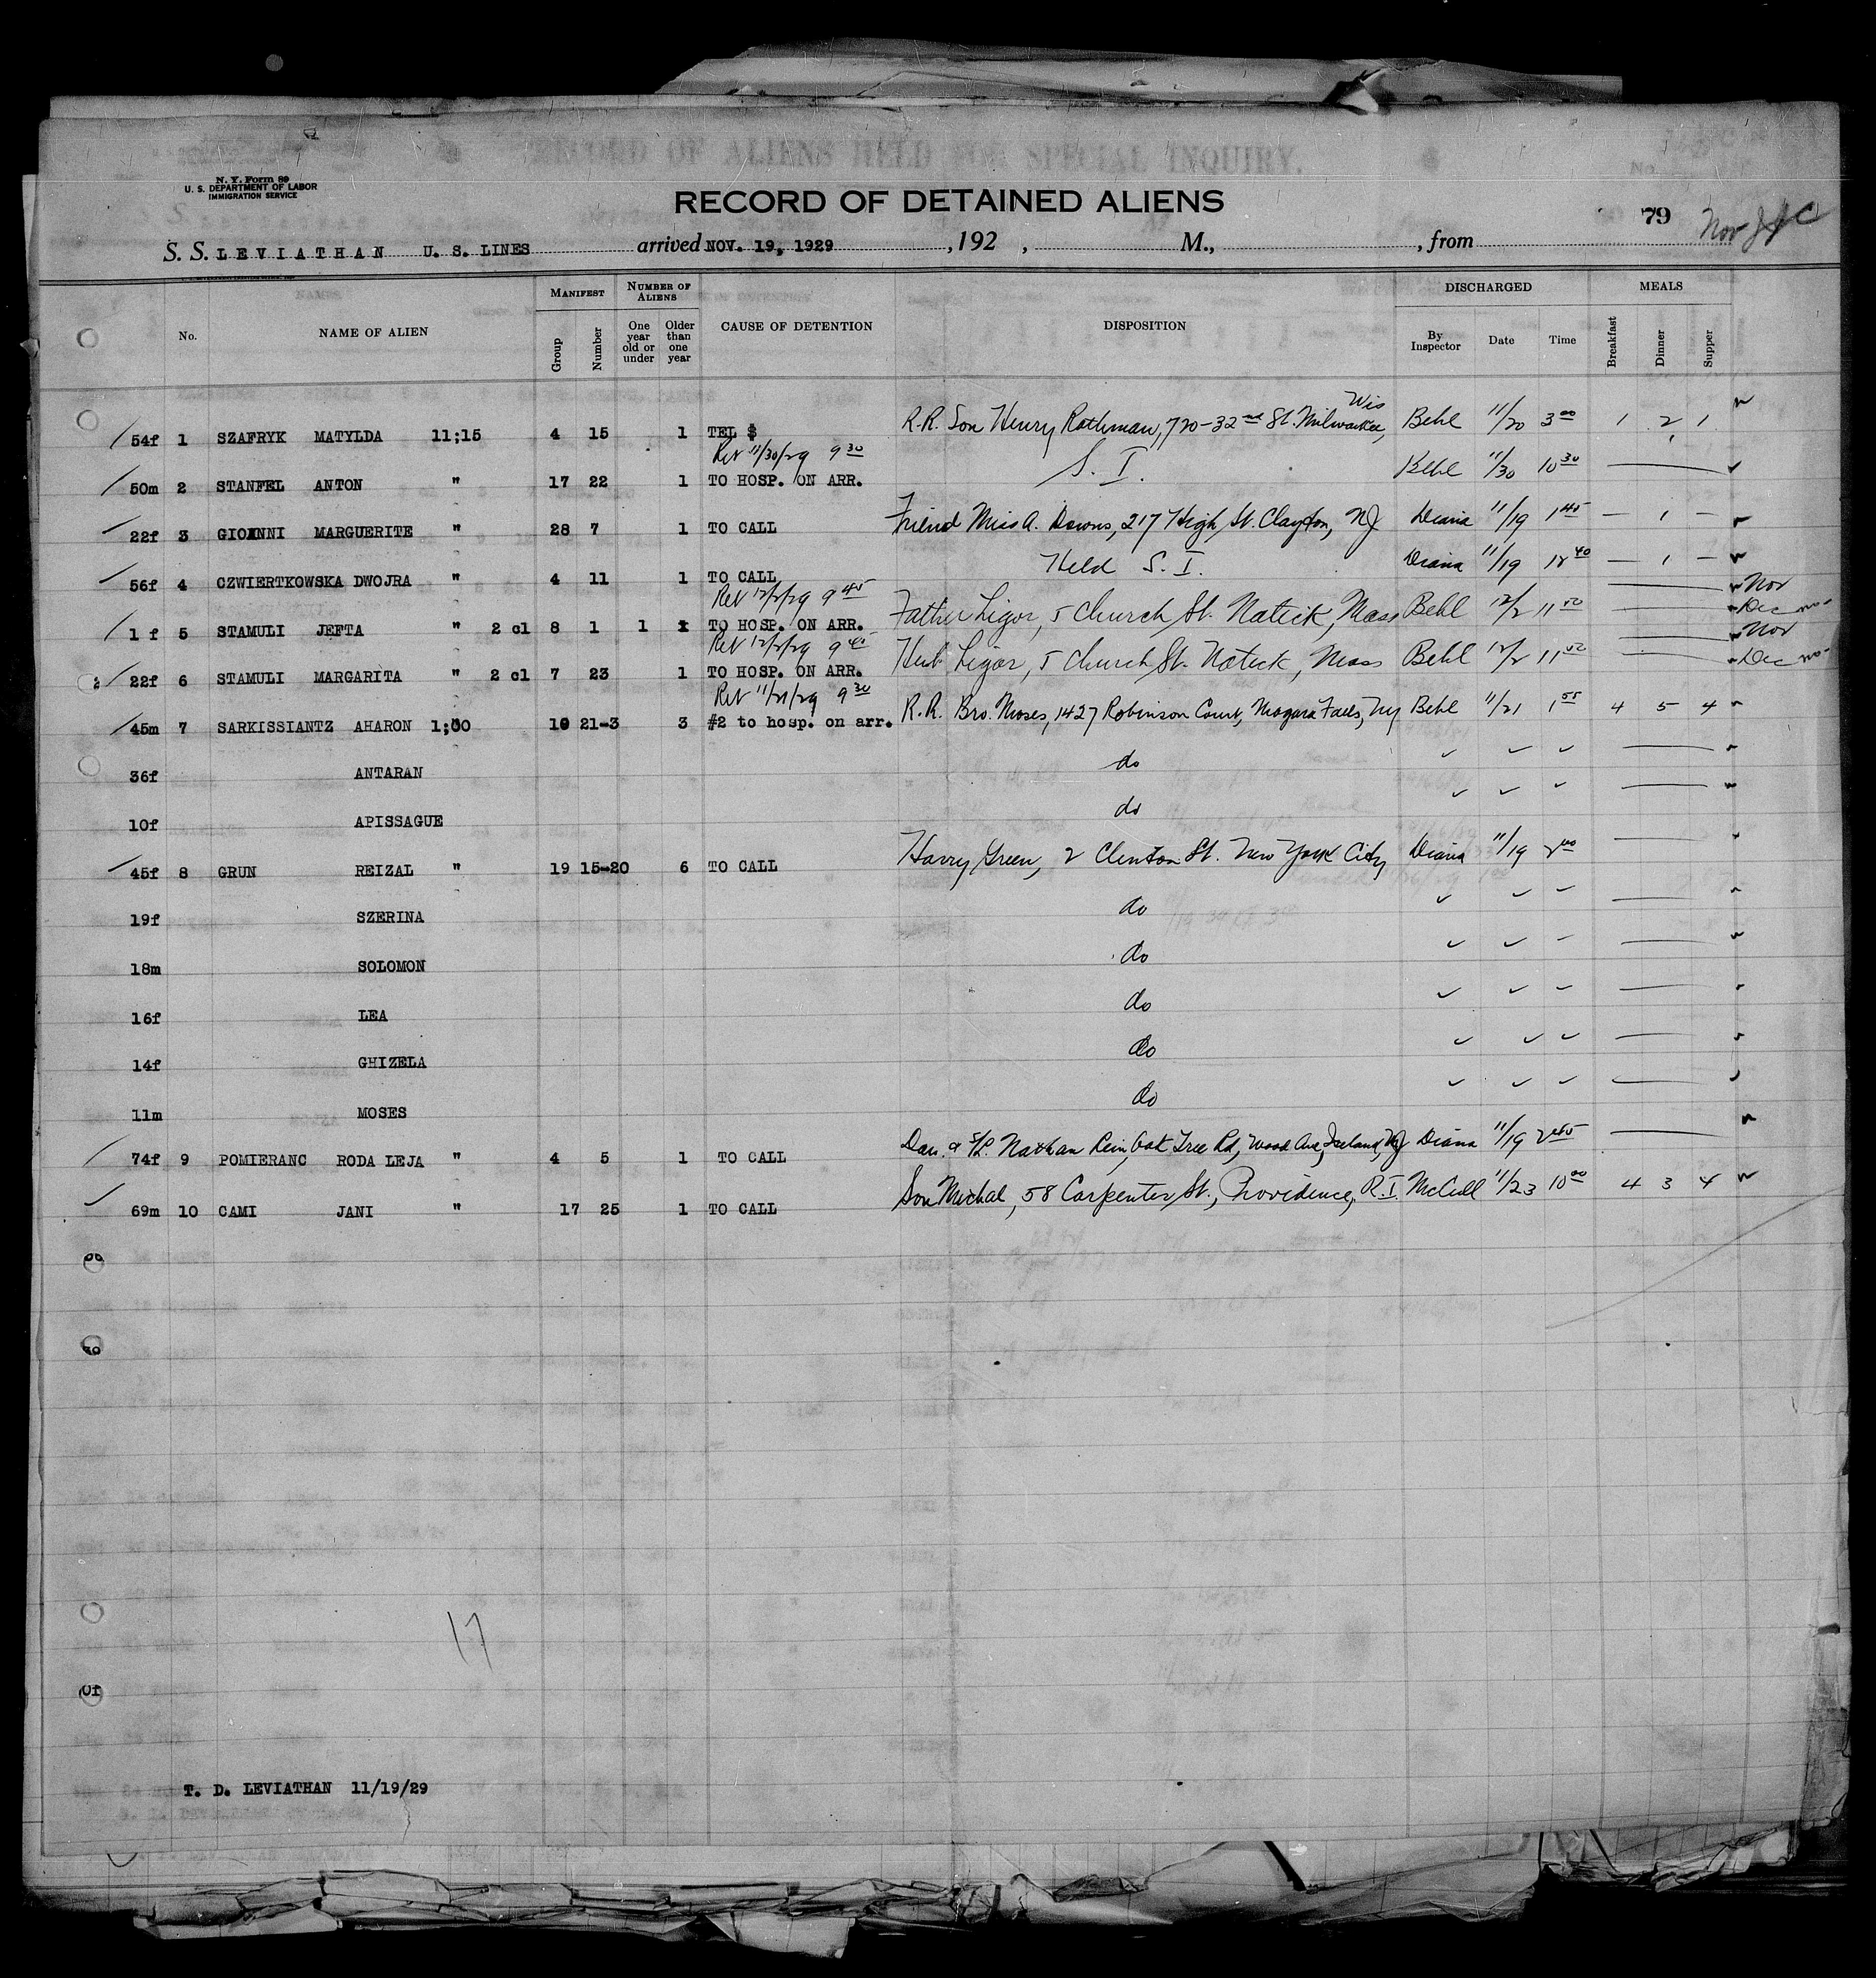 RECORD OF ALIENS HELD FOR SPECIAL INQUIRY.
N. Y. Form 89
U. S. DEPARTMENT OF LABOR
IMMIGRATION SERVICE
RECORD OF DETAINED ALIENS
79 Nov
S. S. LEVIATHAN U. S. LINES arrived NOV. 19, 1929 , 192 , M., , from
No. NAME OF ALIEN MANIFEST Group Number NUMBER OF ALIENS One year old or under Older than one year CAUSE OF DETENTION DISPOSITION DISCHARGED By Inspector Date Time MEALS Breakfast Dinner Supper
54f 1 SZAFRYK MATYLDA 11;15 4 15 1 TEL $ R.R. Son Henry Rothman, 720-32nd St. Milwaukee, Wis Behl 11/20 3 00 1 2 1
Ret 11/30/29 9 30
50m 2 STANFEL ANTON " 17 22 1 TO HOSP. ON ARR. S. I. Behl 11/30 10 30
22f 3 GIOANNI MARGUERITE " 28 7 1 TO CALL Friend Miss A. Downs, 217 High St. Clayton, NJ Diana 11/19 1 45 — 1 —
56f 4 CZWIERTKOWSKA DWOJRA " 4 11 1 TO CALL Held S. I. Diana 11/19 12 40 — 1 —
Ret 12/2/29 9 45
1 f 5 STAMULI JEFTA " 2 cl 8 1 1 1 TO HOSP. ON ARR. Father Ligor, 5 Church St. Natick, Mass Behl 12/2 11 00 Nov Dec
Ret 12/2/29 9 45
22f 6 STAMULI MARGARITA " 2 cl 7 23 1 TO HOSP. ON ARR. Husb Ligor, 5 Church St. Natick, Mass Behl 12/2 11 00 Nov Dec
Ret 11/21/29 9 30
45m 7 SARKISSIANTZ AHARON 1;00 10 21-3 3 #2 to hosp. on arr. R.R. Bro. Moses, 1427 Robinson Court, Niagara Falls, NY Behl 11/21 1 55 4 5 4
36f ANTARAN do
10f APISSAGUE do
45f 8 GRUN REIZAL " 19 15-20 6 TO CALL Harry Green, 2 Clinton St. New York City Diana 11/19 2 00
19f SZERINA do
18m SOLOMON do
16f LEA do
14f GHIZELA do
11m MOSES do
74f 9 POMIERANC RODA LEJA " 4 5 1 TO CALL Dau. Nathan Rein, Oak Tree Rd, Wood Ave, Iseland, NJ Diana 11/19 2 45
69m 10 CAMI JANI " 17 25 1 TO CALL Son Michal, 58 Carpenter St., Providence, R.I. McGill 11/23 10 00 4 3 4
17
T. D. LEVIATHAN 11/19/29